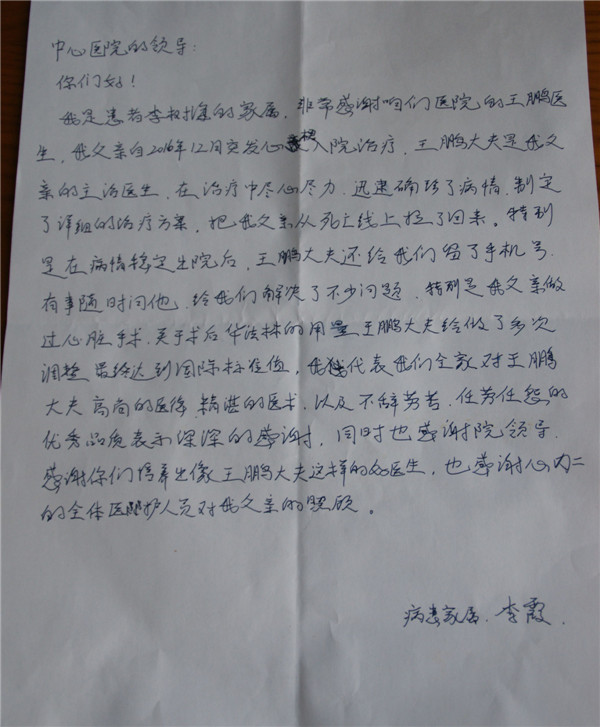 中心医院的领导:
你们好!
我是患者李树的家属,非常感谢咱们医院的王鹏医
生,我父亲自2016年12月突发心梗入院治疗,王鹏大夫是我父
亲的主治医生,在治疗中尽心尽力,迅速确诊了病情,制定
了详细的治疗方案,把我父亲从死亡线上拉了回来。特别
是在病情稳定出院后,王鹏大夫还给我们留了手机号,
有事随时问他,给我们解决了不少问题,特别是我父亲做
过心脏手术,关于术后华法林的用量王鹏大夫给做了多次
调整最终达到国际标准值,我代表我们全家对王鹏
大夫高尚的医德,精湛的医术,以及不辞劳苦、任劳任怨的
优秀品质表示深深的感谢,同时也感谢院领导,
感谢你们培养出像王鹏大夫这样的好医生,也感谢心内二
的全体医护人员对我父亲的照顾。
病患家属:李霞.